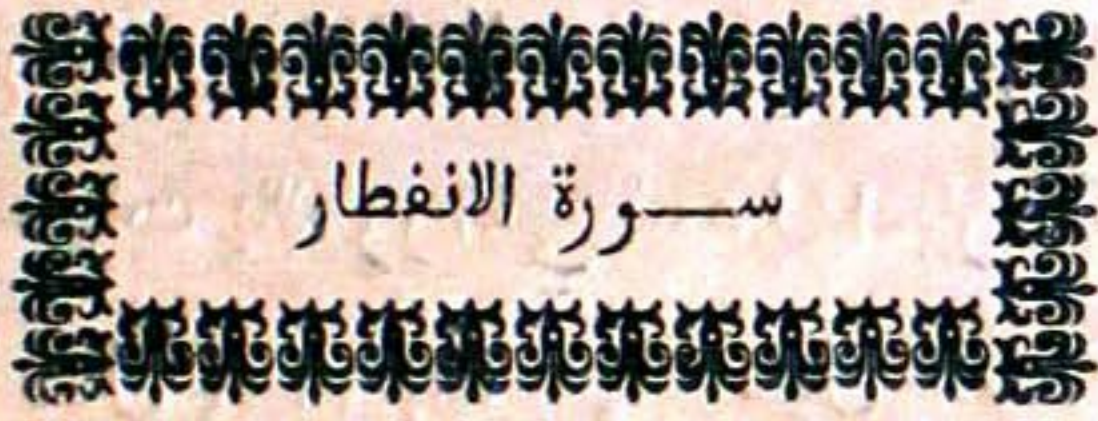 سـورة الانفطار